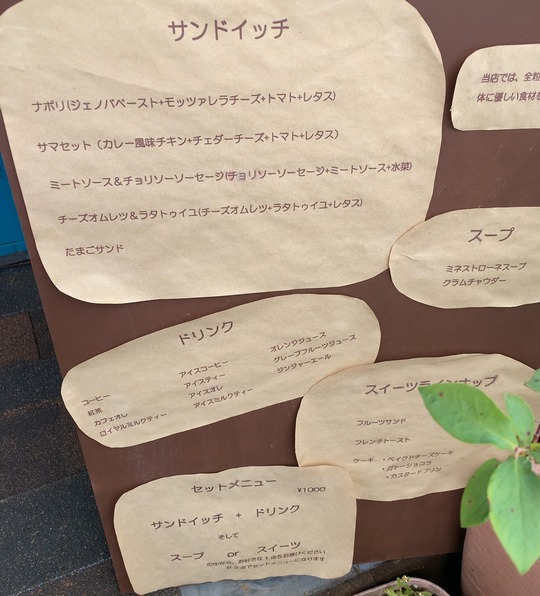 サンドイッチ
ナポリ(ジェノバペースト+モッツァレラチーズ+トマト+レタス)
サマセット(カレー風味チキン+チェダーチーズ+トマト+レタス)
ミートソース&チョリソーソーセージ(チョリソーソーセージ+ミートソース+水菜)
チーズオムレツ&ラタトゥイユ(チーズオムレツ+ラタトゥイユ+レタス)
たまごサンド
当店では、全粒
体に優しい食材を
スープ
ミネストローネスープ
クラムチャウダー
ドリンク
コーヒー
紅茶
カフェオレ
ロイヤルミルクティー
アイスコーヒー
アイスティー
アイスオレ
アイスミルクティー
オレンジジュース
グレープフルーツジュース
ジンジャーエール
スイーツラインナップ
フルーツサンド
フレンチトースト
ケーキ ・ベイクドチーズケーキ
・ガトーショコラ
・カスタードプリン
セットメニュー
¥1000
サンドイッチ + ドリンク
そして
スープ or スイーツ
の中から、お好きな1点をお選びください
計3点でセットメニューになります